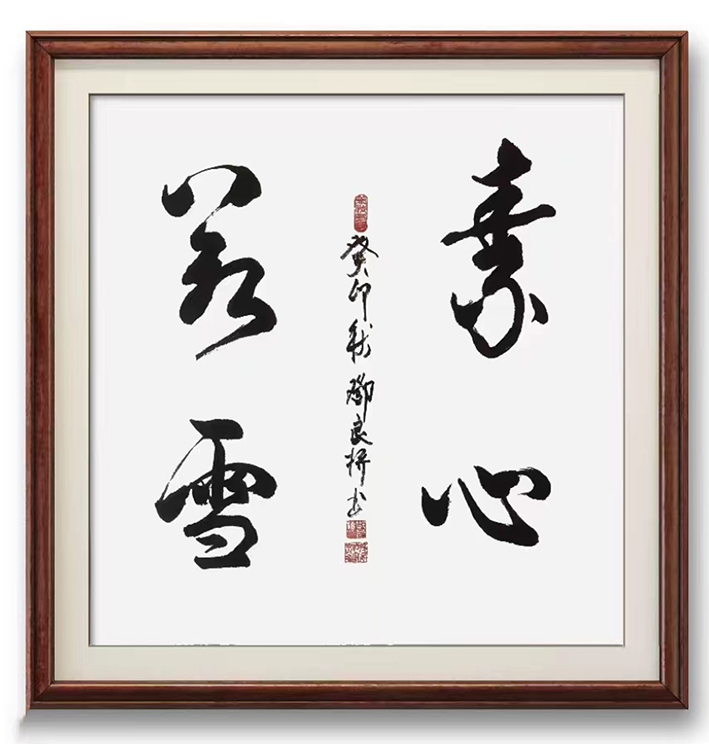 素心
若雪
癸卯秋 鄧良书